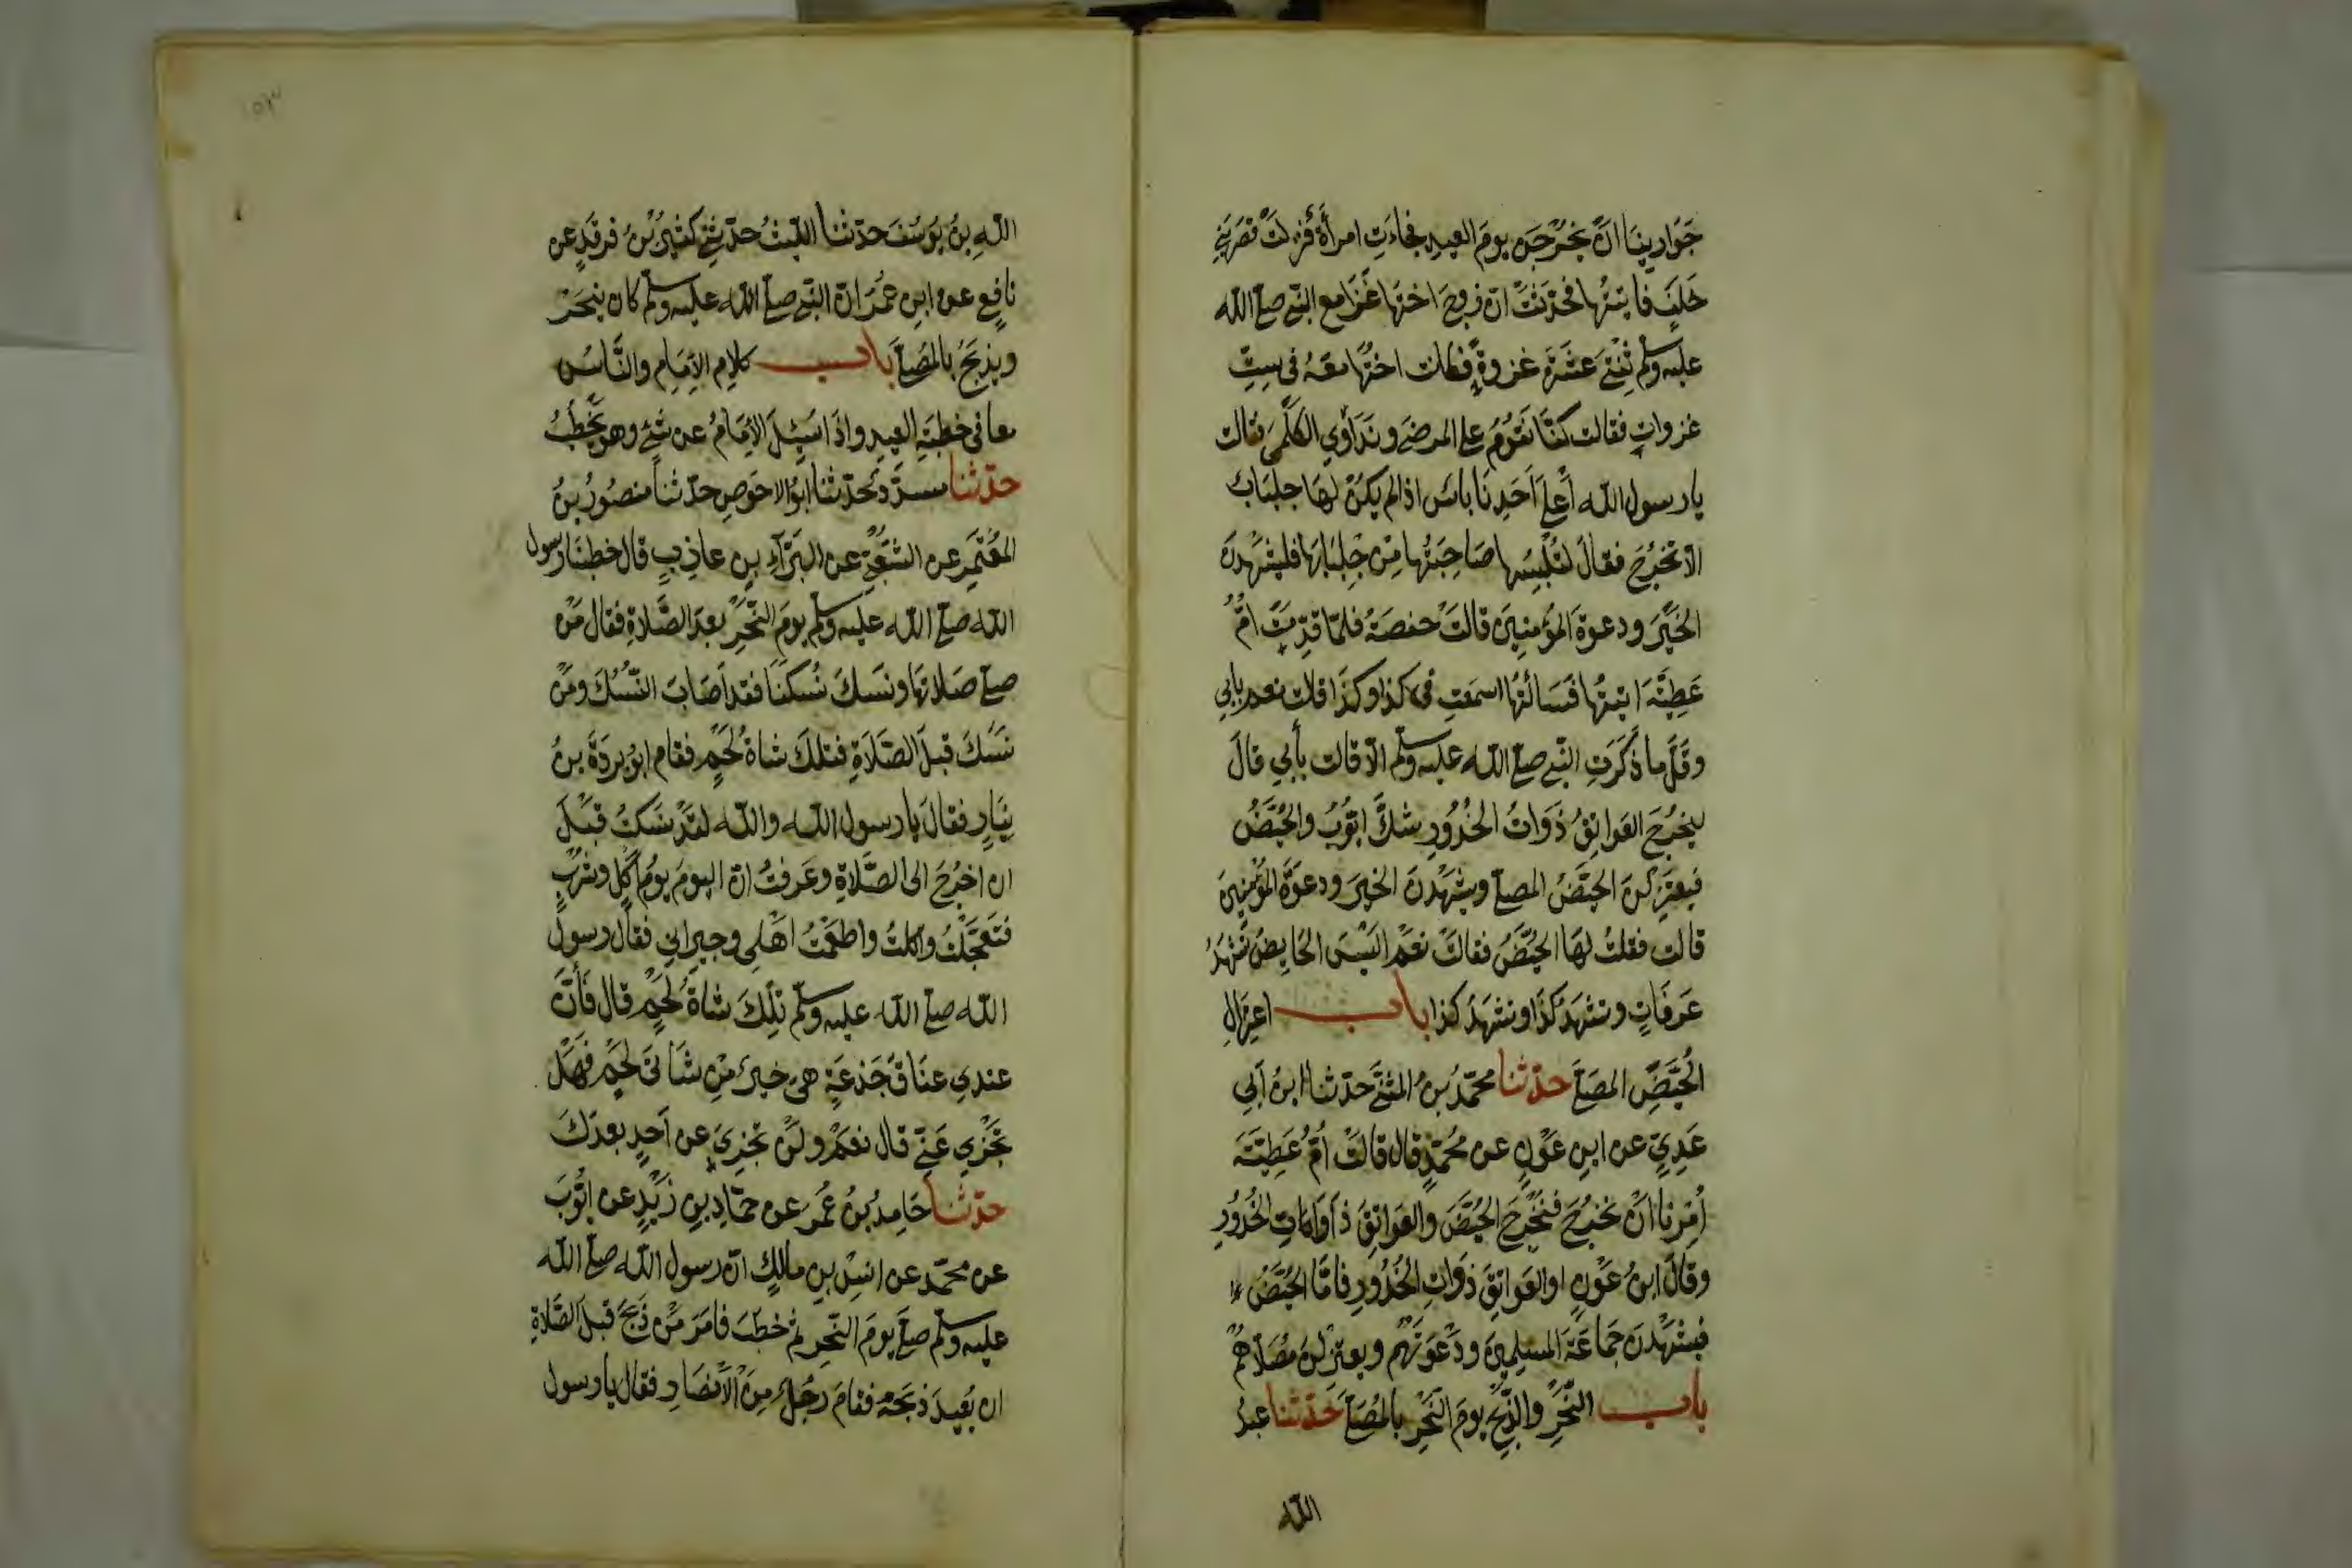 جَوَارِيَنَا اَنْ يَخْرُجْنَ يومَ العيدِ فجاءَتِ امرأةٌ فنزلَتْ قصرَ بَنِي
خَلَفٍ فاتيتُها فحدّثتْ انّ زوجَ اختِها غَزَا مع النبي صلى الله
عليه وسلم ثِنْتَي عَشَرَةَ غزوةً فكانت اختُها معَهُ فى سِتِّ
غزواتٍ فقالت كنّا نَقُومُ على المرضَى ونداوِي الكَلْمَى فقالت
يا رسول الله أَعلى اَحَدِنَا باسٌ اذا لم يكنْ لهَا جلبَابٌ
الّا تخرُجَ فقالَ لتُلْبِسْها صَاحِبَتُها مِنْ جِلبَابِهَا فليشهَدنَ
الخَيْرَ ودعوةَ المؤمنِينَ قالتْ حفصَةُ فلمّا قدِمَتْ امُّ
عَطِيَّةَ اتيتُها فَسَالتُها اسمعتِ فى كذا وكذَا قالت نعم بابي
وقَلَّ ما ذَكَرَتِ النبي صلى الله عليه وسلم الّا قالت بأبي قالَ
ليخرُجَ العَواتِقُ ذَوَاتُ الخُدُورِ شَكَّ ايّوبُ والحُيَّضُ
فيعتزِلنَ الحيَّضُ المصلى ويشهَدنَ الخير ودعوَةَ المؤمنِينَ
قالت فقلتُ لهَا الحُيَّضُ فقالتْ نعَمْ اليْسَ الحَايِضُ تَشْهَدُ
عَرفَاتٍ وتشهَدُ كذَا وتشهَدُ كذا باب اعتزالِ
الحُيَّضِ المصَلَّى حدّثنا محمّدُ بنُ المثنَّى حدّثنا ابنُ اَبي
عَدِيٍّ عن ابنِ عَوْنٍ عن مُحمّدٍ قال قالتْ اُمُّ عَطِيَّةَ
اُمِرنا اَنْ نخرُجَ فنُخرِجَ الحُيَّضَ والعَواتِقَ ذَوَاتِ الخُدُورِ
وقالَ ابنُ عَوْنٍ او العَواتِقَ ذوَاتِ الخُدُورِ فامّا الحُيَّضُ
فيشهَدنَ جَماعَةَ المسلِمِينَ ودَعْوَتَهُم ويعتزِلنَ مُصَلّاهُم
باب النَّحْرِ والذَّبْحِ يومَ النَّحْرِ بالمُصَلَّى حَدّثنا عبدُ
الله
١٥٣
اللهِ بنُ يوسُفَ حدّثنا الليثُ حدّثنِي كثيرُ بْنُ فرقدٍ عن
نافِعٍ عن ابنِ عُمَرَ انّ النبي صلى الله عليه وسلم كان ينحَرُ
ويذبَحُ بالمُصَلَّى باب كلامِ الاِمَامِ والنَّاسِ
معا فى خطبَةِ العيدِ واذَا سُئِلَ الاِمَامُ عن شئ وهو يَخْطُبُ
حدّثنا مسدّدٌ حدّثنا ابُو الاحوَصِ حدّثنا منصُورُ بنُ
المُعْتَمِرِ عن الشَّعْبِيِّ عن البَرَآءِ بنِ عازِبٍ قال خطبنَا رسول
الله صلى الله عليه وسلم يومَ النَّحْرِ بعدَ الصَّلاةِ فقال مَنْ
صلى صَلاتَهَا ونسَكَ نُسكَنَا فقد اَصَابَ النُّسُكَ ومَنْ
نسَكَ قبلَ الصَّلَاةِ فتلكَ شاةُ لَحْمٍ فقام ابُو بردَةَ بنُ
نِيَارٍ فقالَ يا رسول الله والله لقَدْ نسَكتُ قبْلَ
ان اخرُجَ الى الصَّلاةِ وعَرفتُ انّ اليومَ يومُ اَكْلٍ وشُرْبٍ
فتَعَجَّلْتُ واكلتُ واطعَمْتُ اهْلي وجيرانِي فقال رسول
الله صلى الله عليه وسلم تِلْكَ شاةُ لَحْمٍ قال فَاِنَّ
عندِي عنَاقَ جَذَعَةٍ هى خيرٌ مِنْ شاتَىْ لَحْمٍ فَهَلْ
تَجْزِي عَنِّي قال نعَمْ ولَنْ تجزِيَ عن اَحَدٍ بعدَكَ
حدّثنا حَامِدُ بنُ عُمَرَ عن حمّادِ بنِ زَيْدٍ عن ايّوبَ
عن محمّدٍ عن انسِ بنِ مالكٍ انّ رسول الله صلى الله
عليه وسلم صلى يومَ النّحرِ ثم خطبَ فامَرَ مَنْ ذَبَحَ قبلَ الصَّلاةِ
ان يُعِيدَ ذبحَهُ فقامَ رَجُلٌ مِنَ الاَنْصَارِ فقال يا رسول